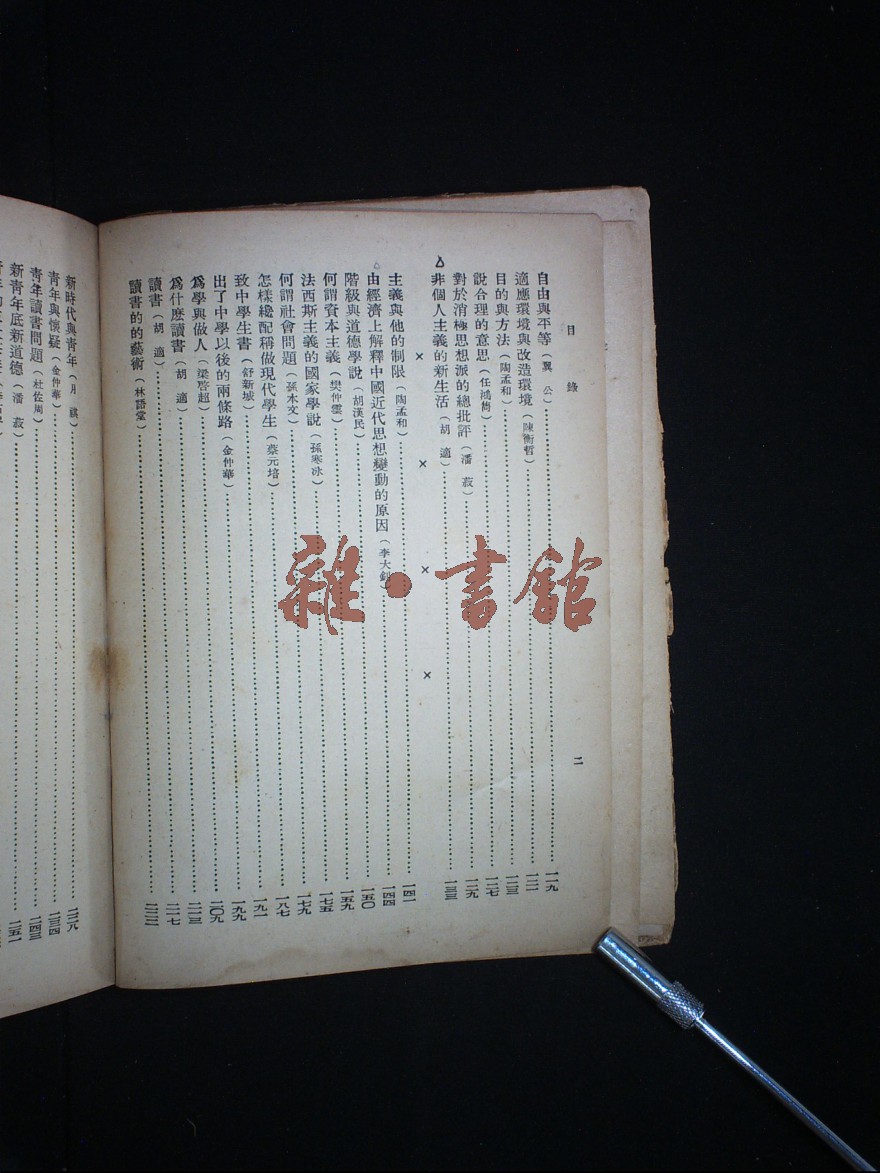 目錄
二
自由與平等(冀公)……一一九
適應環境與改造環境(陳衡哲)……一二一
目的與方法(陶孟和)……一二三
說合理的意思(任鴻雋)……一二七
對於消極思想派的總批評(潘菽)……一二九
非個人主義的新生活(胡適)……一三三
× × × ×
主義與他的制限(陶孟和)……一四一
由經濟上解釋中國近代思想變動的原因(李大釗)……一四四
階級與道德學說(胡漢民)……一五〇
何謂資本主義(樊仲雲)……一五九
法西斯主義的國家學說(孫寒冰)……一七五
何謂社會問題(孫本文)……一七九
怎樣纔配稱做現代學生(蔡元培)……一八七
致中學生書(舒新城)……一九一
出了中學以後的兩條路(金仲華)……一九九
爲學與做人(梁啓超)……二〇九
爲什麽讀書(胡適)……二一三
讀書(胡適)……二一七
讀書的的藝術(林語堂)……二二三
新時代與青年(月祺)……二二八
青年與懷疑(金仲華)……二三四
青年讀書問題(杜佐周)……二四三
新青年底新道德(潘菽)……二五一
雜·書館